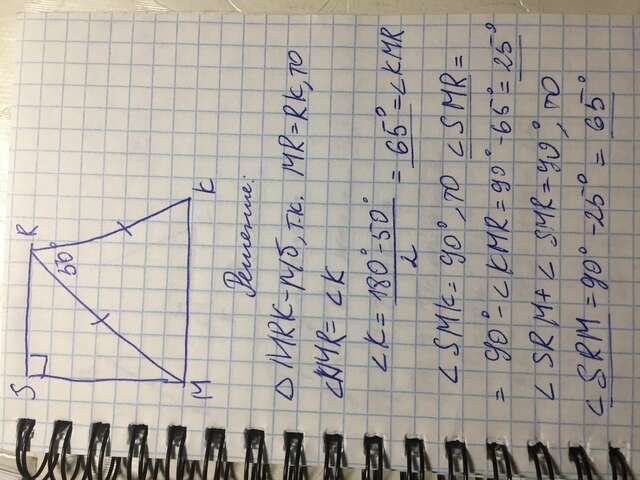 S R
50°
M K
Решение:
△ MRK - р/б, т.к. MR = RK, то
∠KMR = ∠K
∠K = 180° - 50° / 2 = 65° = ∠KMR
∠SMK = 90°, то ∠SMR =
= 90° - ∠KMR = 90° - 65° = 25°
∠SRM + ∠SMR = 90°, то
∠SRM = 90° - 25° = 65°